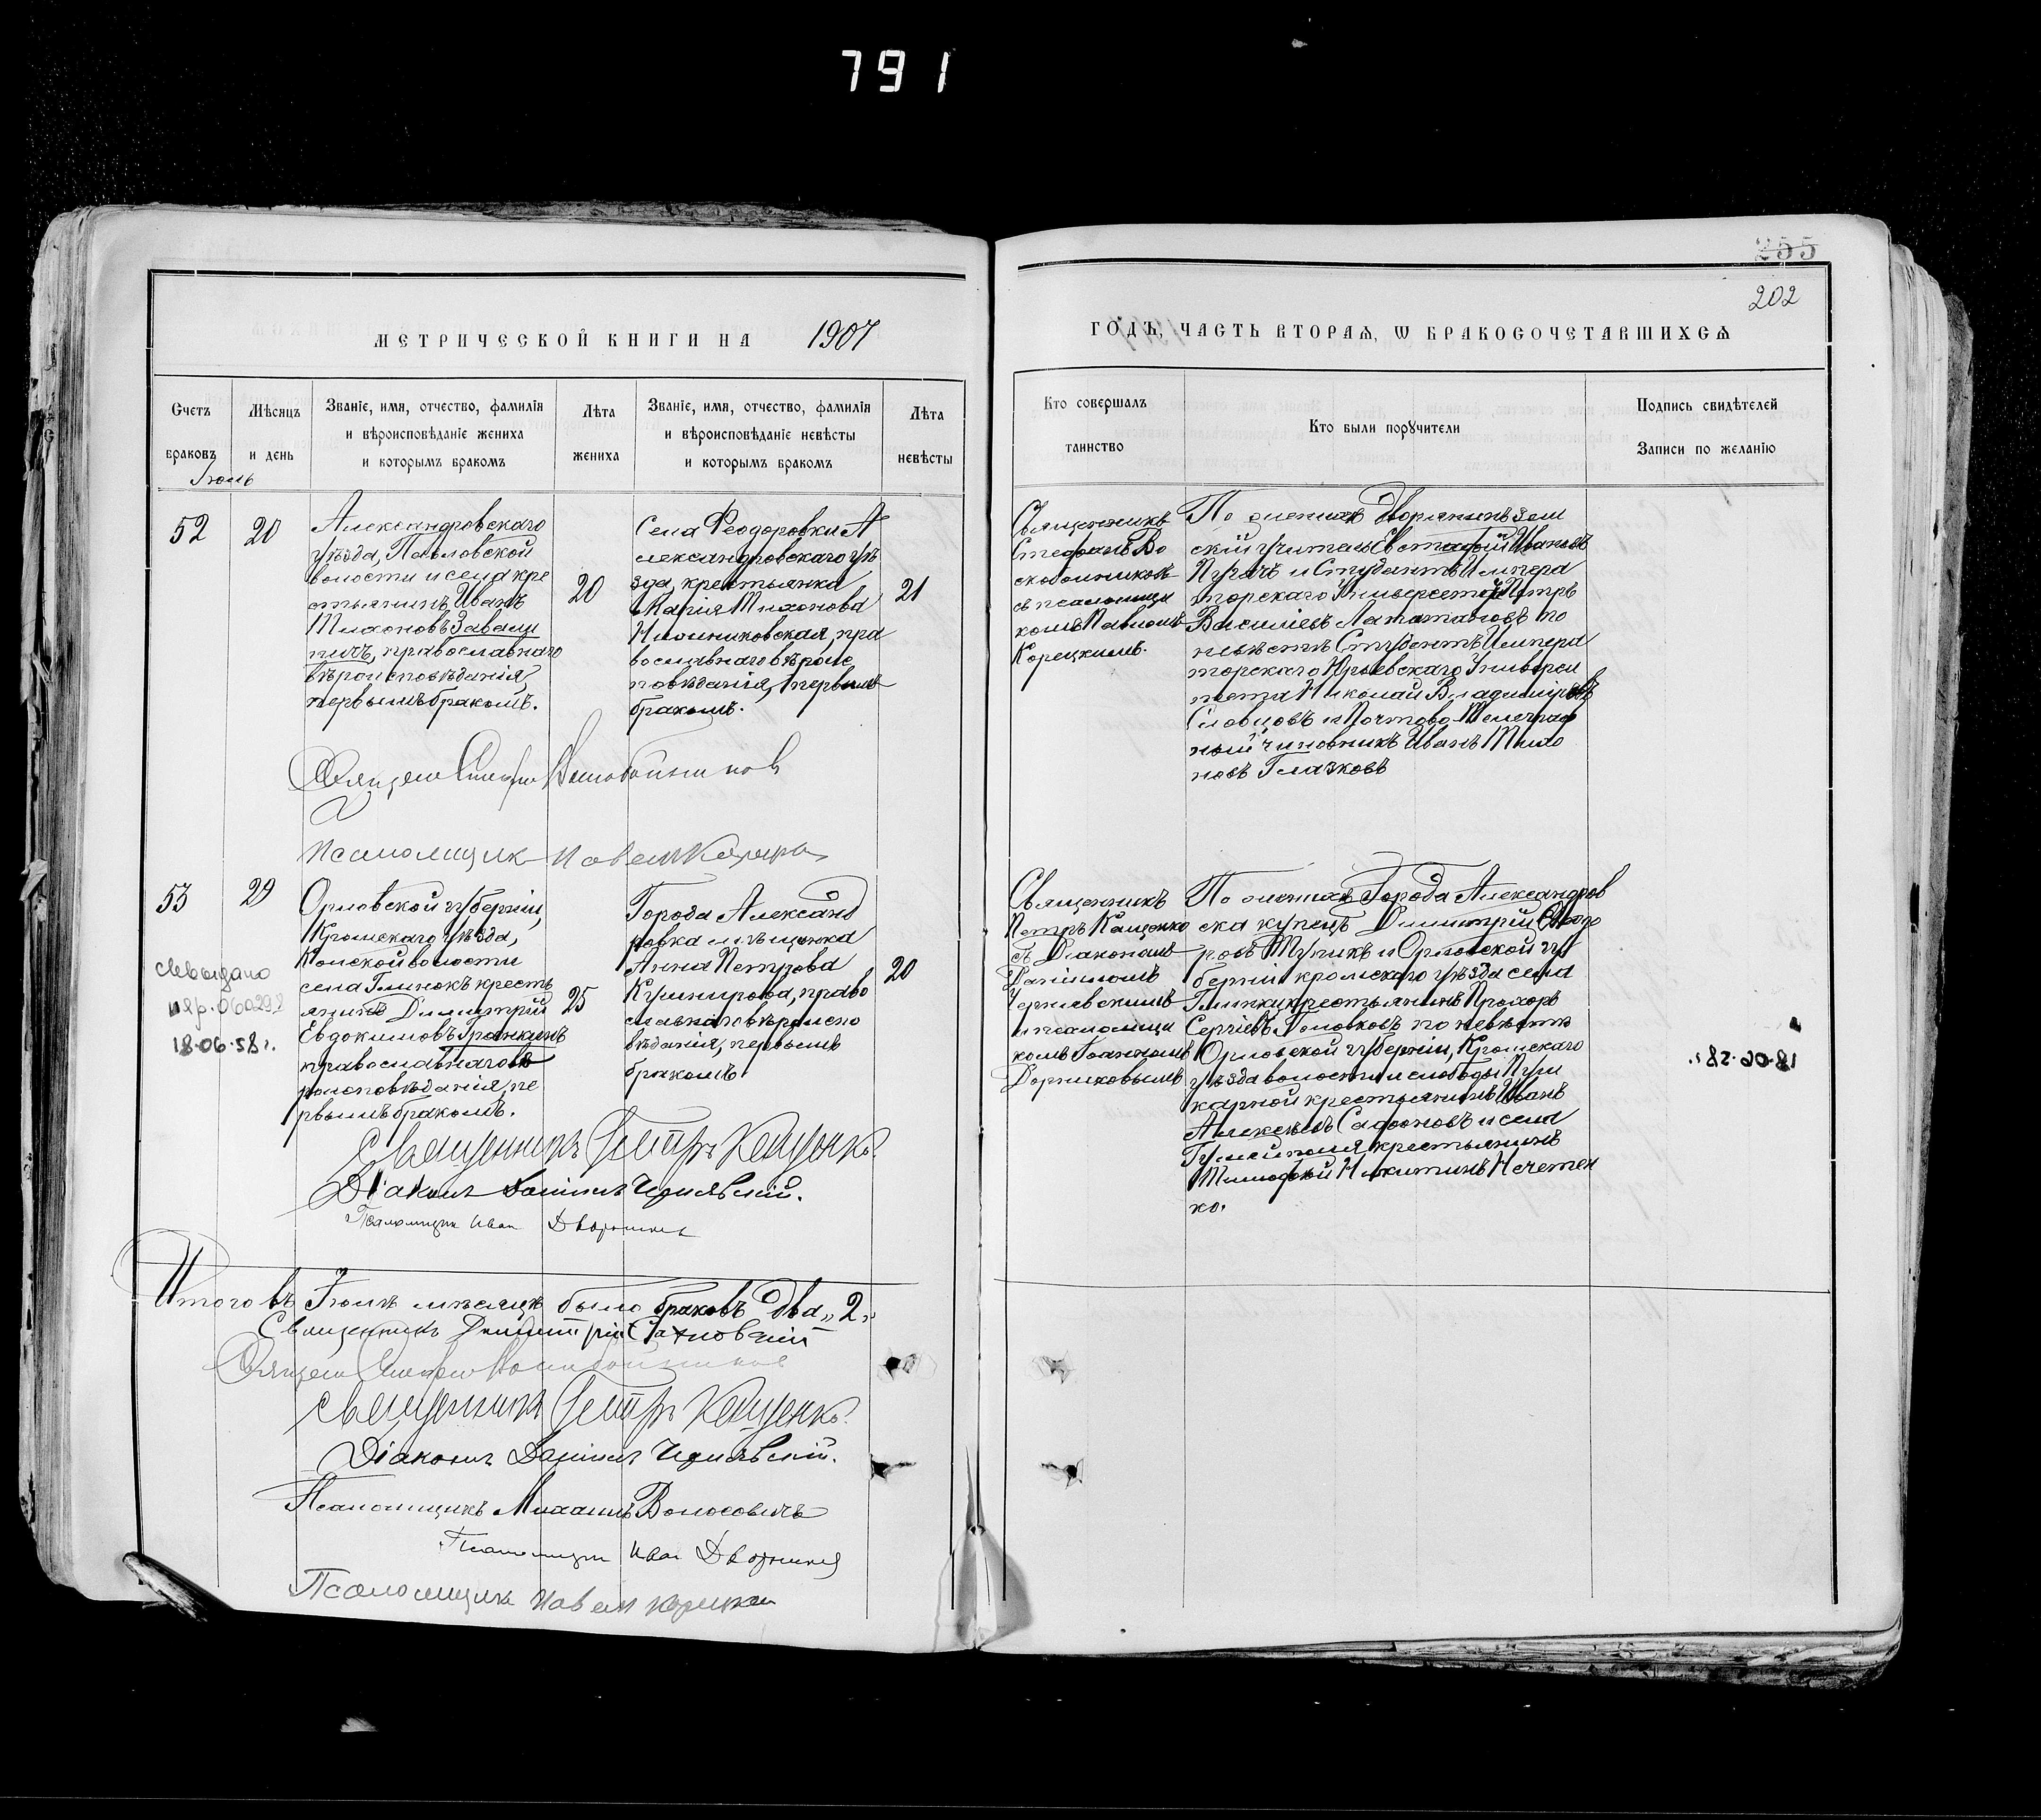 791
255
202
МЕТРИЧЕСКОЙ КНИГИ НА 1907
ГОДЪ, ЧАСТЬ ВТОРАЯ, Ѡ БРАКОСОЧЕТАВШИХСЯ
Счетъ браковъ
Мѣсяцъ и день
Званіе, имя, отчество, фамилія
и вѣроисповѣданіе жениха
и которымъ бракомъ
Лѣта жениха
Званіе, имя, отчество, фамилія
и вѣроисповѣданіе невѣсты
и которымъ бракомъ
Лѣта невѣсты
Кто совершалъ
таинство
Кто были порꙋчители
Подпись свидѣтелей
Записи по желанію
Іюль
52
20
Александровскаго
уѣзда, Павловской
волости и села кре
стьянинъ Иванъ
Тихоновъ Завали
пичъ, православнаго
вѣроисповѣданія,
первымъ бракомъ.
20
Села Ѳеодоровки А
лександровскаго уѣ
зда, крестьянка
Марія Тихонова
православнаго вѣроис
повѣданія, первымъ
бракомъ.
21
Священникъ
Стефанъ Во
скобойниковъ
съ псаломщи
комъ Павломъ
Корецкимъ.
По женихѣ Дворянинъ зем
скій учитель Евстафій Ивановъ
Пугачъ и Студентъ Импера
торскаго Университета Петръ
Василіевъ по
невѣстѣ Студентъ Импера
торскаго Юрьевскаго Универси
тета Николай Владиміровъ
Словцовъ и Почтово-Телеграф
ный чиновникъ Иванъ Тихо
новъ Глазковъ
Священ Стефан Воскобойников
Псаломщик Павел Корецкий
53
29
Орловской губерніи,
Кромскаго уѣзда,
волости
села Глинокъ кресть
янинъ Димитрій
Евдокимовъ Гранкинъ
православнаго вѣ
роисповѣданія, пе
рвымъ бракомъ.
25
Города Александ
ровска мѣщанка
Анна Петрова
Кушнирова, право
славнаго вѣроиспо
вѣданія, первымъ
бракомъ
20
Св выдано
18.06.58 г.
Священникъ
Петръ Кащенко
съ Діакономъ
Даніиломъ
Чернявскимъ
и псаломщи
комъ Іоанномъ
Дворниковымъ
По женихѣ Города Александров
ска купецъ Димитрій Ѳеодо
ровъ Тупикъ и Орловской гу
берніи Кромскаго уѣзда села
Глинки крестьянинъ Прохоръ
Сергіевъ Головковъ по невѣстѣ
Орловской губерніи, Кромскаго
уѣзда волости и слободы Пуш
карной крестьянинъ Иванъ
Алексѣевъ Сафоновъ и села
Гуляйполя крестьянинъ
Тимофей Никитинъ Нечетен
ко.
18.06.58 г.
Священникъ Петръ Кащенко
Діаконъ Даніилъ Чернявскій.
Псаломщик Иван Дворников
Итого въ Іюлѣ мѣсяцѣ было браковъ два „2„
Священникъ Димитрій Сахновскій
Священ Стефан Воскобойников
Священникъ Петръ Кащенко.
Діаконъ Даніилъ Чернявскій.
Псаломщикъ Михаилъ Волосовичъ
Псаломщик Иван Дворников
Псаломщик Павел Корецкий